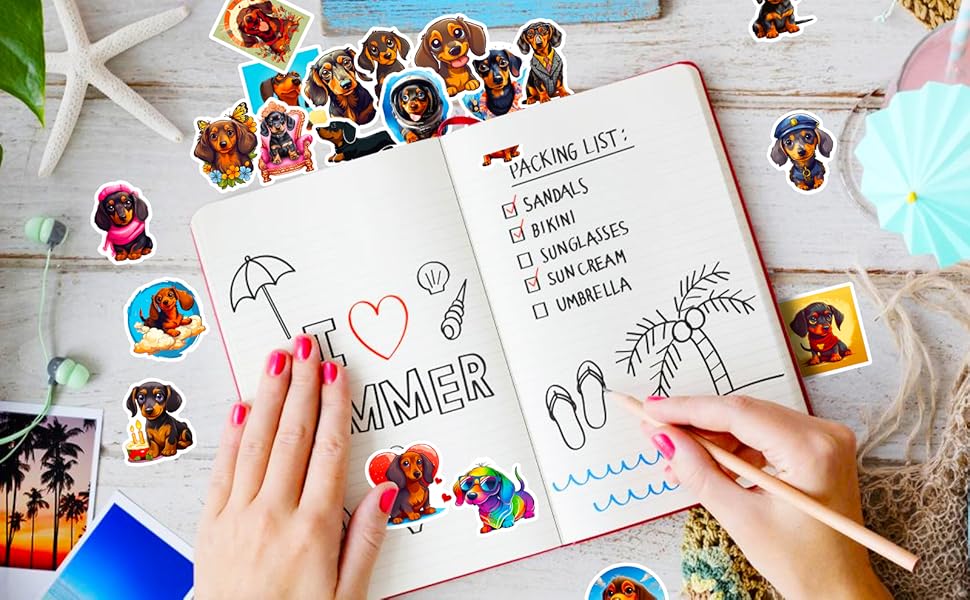 I
MMER
PACKING LIST:
SANDALS
BIKINI
SUNGLASSES
SUN CREAM
UMBRELLA